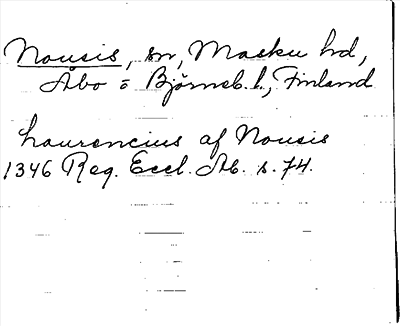 Nousis, sn, Masku hd,
Åbo o Björneb. l., Finland
Laurencius af Nousis
1346 Reg. Eccl. Ab. s. 74.